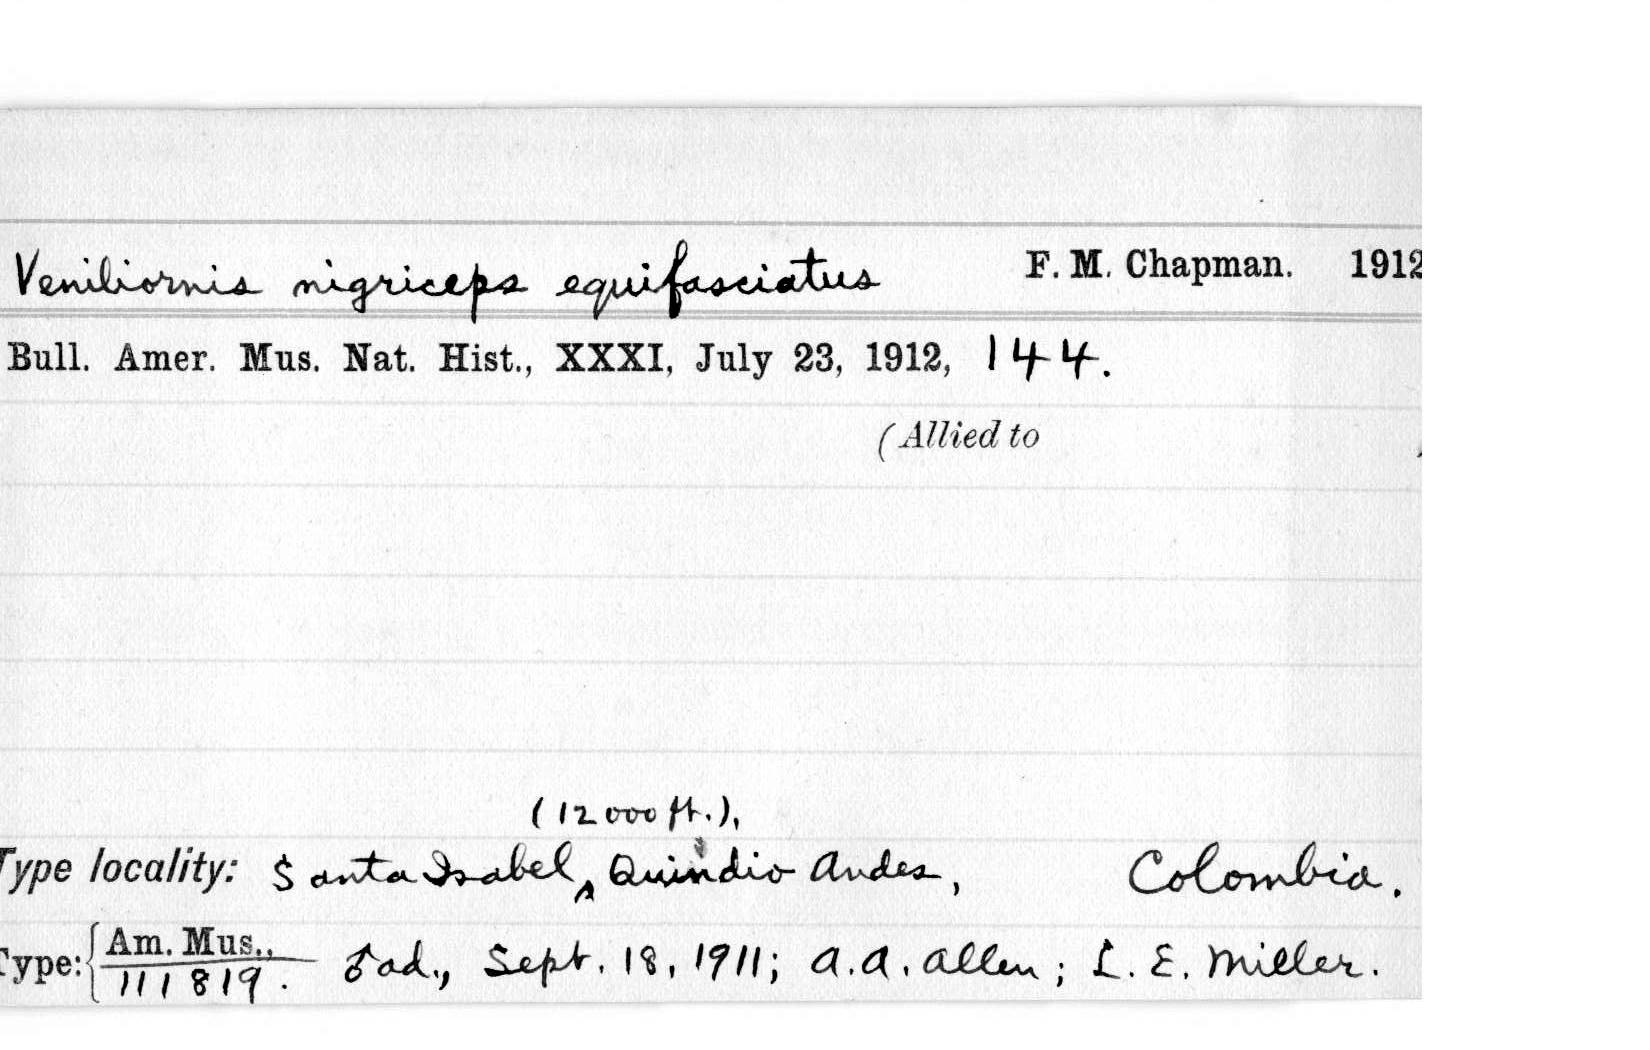 Veniliornis nigriceps equifasciatus F. M. Chapman. 1912
Bull. Amer. Mus. Nat. Hist., XXXI, July 23, 1912, 144.
(Allied to
(12000 ft.),
Type locality: Santa Isabel, ʌ Quindio Andes, Colombia.
Type: { Am. Mus.,
111819. ♂ ad., Sept. 18, 1911; A.A. Allen; L. E. Miller.